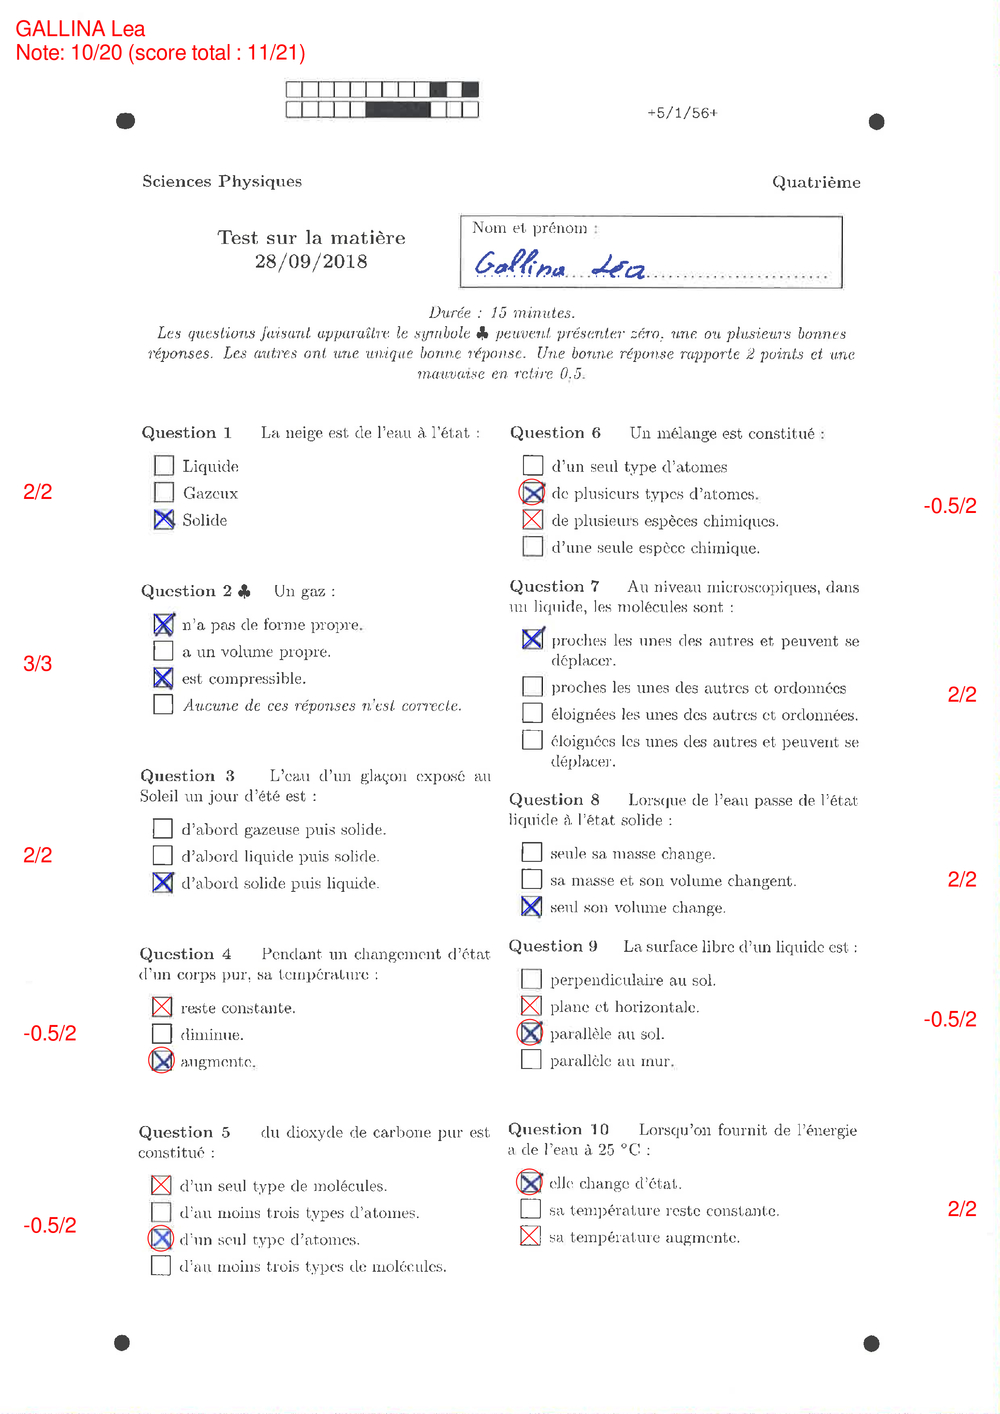 GALLINA Lea
Note: 10/20 (score total : 11/21)
+5/1/56+
Sciences Physiques
Quatrième
Test sur la matière
28/09/2018
Nom et prénom :
Gallina Léa
Durée : 15 minutes.
Les questions faisant apparaître le symbole ♣ peuvent présenter zéro, une ou plusieurs bonnes
réponses. Les autres ont une unique bonne réponse. Une bonne réponse rapporte 2 points et une
mauvaise en retire 0,5.
Question 1 La neige est de l'eau à l'état :
Liquide
2/2
Gazeux
Solide
Question 2 ♣ Un gaz :
n'a pas de forme propre.
a un volume propre.
3/3
est compressible.
Aucune de ces réponses n'est correcte.
Question 3 L'eau d'un glaçon exposé au
Soleil un jour d'été est :
d'abord gazeuse puis solide.
2/2
d'abord liquide puis solide.
d'abord solide puis liquide.
Question 4 Pendant un changement d'état
d'un corps pur, sa température :
reste constante.
-0.5/2
diminue.
augmente.
Question 5 du dioxyde de carbone pur est
constitué :
d'un seul type de molécules.
d'au moins trois types d'atomes.
-0.5/2
d'un seul type d'atomes.
d'au moins trois types de molécules.
Question 6 Un mélange est constitué :
d'un seul type d'atomes
de plusieurs types d'atomes.
-0.5/2
de plusieurs espèces chimiques.
d'une seule espèce chimique.
Question 7 Au niveau microscopiques, dans
un liquide, les molécules sont :
proches les unes des autres et peuvent se
déplacer.
proches les unes des autres et ordonnées
2/2
éloignées les unes des autres et ordonnées.
éloignées les unes des autres et peuvent se
déplacer.
Question 8 Lorsque de l'eau passe de l'état
liquide à l'état solide :
seule sa masse change.
sa masse et son volume changent.
2/2
seul son volume change.
Question 9 La surface libre d'un liquide est :
perpendiculaire au sol.
plane et horizontale.
-0.5/2
parallèle au sol.
parallèle au mur.
Question 10 Lorsqu'on fournit de l'énergie
a de l'eau à 25 °C :
elle change d'état.
sa température reste constante.
2/2
sa température augmente.